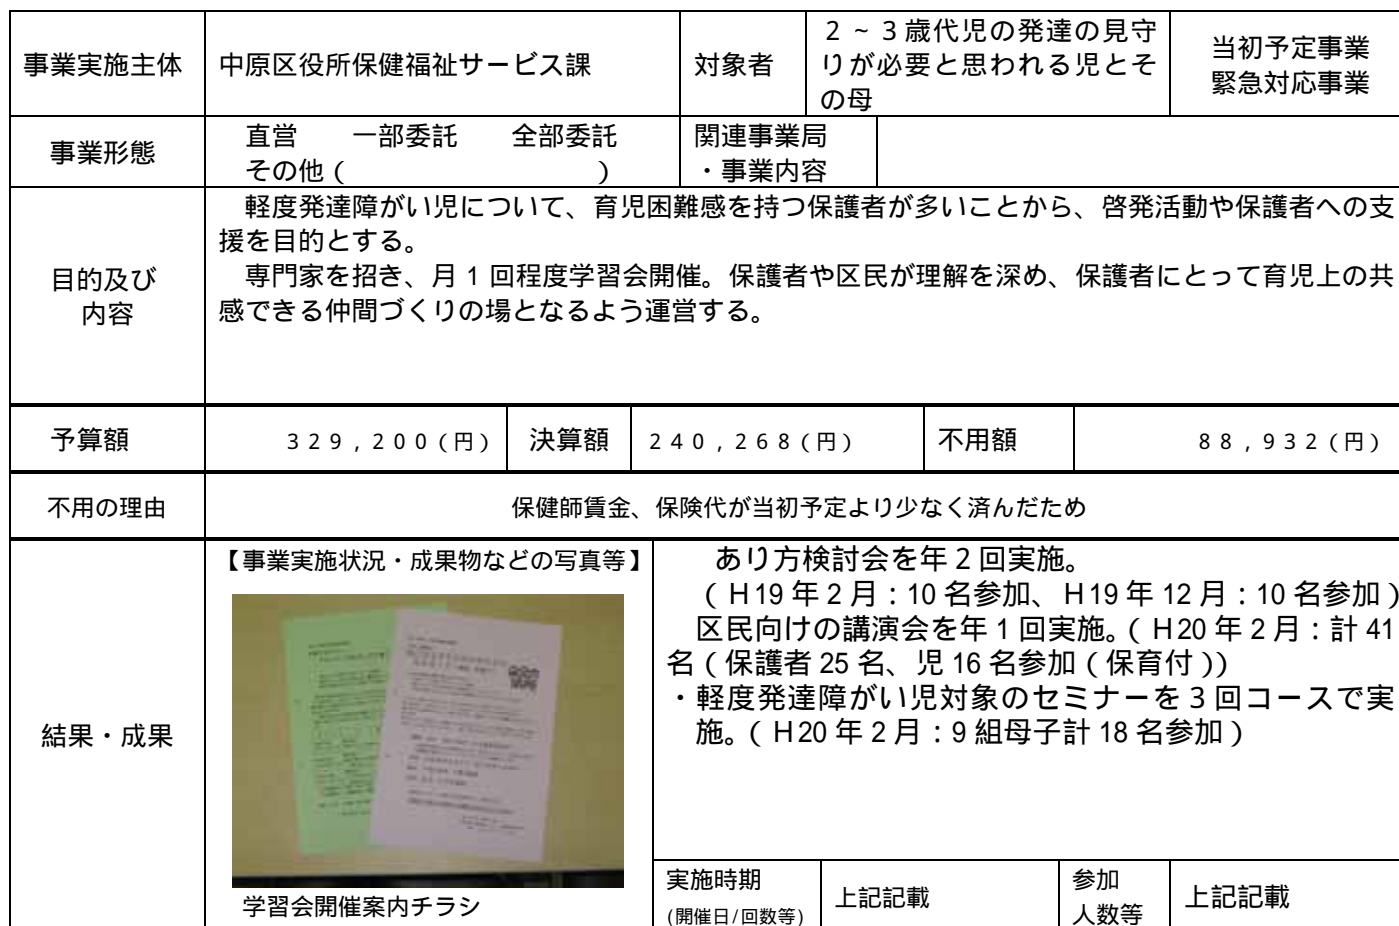 事業実施主体
中原区役所保健福祉サービス課
対象者
２～３歳代児の発達の見守
りが必要と思われる児とそ
の母
当初予定事業
緊急対応事業
事業形態
直営　　一部委託　　全部委託
その他（　　　　　　　　　）
関連事業局
・事業内容
目的及び
内容
軽度発達障がい児について、育児困難感を持つ保護者が多いことから、啓発活動や保護者への支
援を目的とする。
専門家を招き、月１回程度学習会開催。保護者や区民が理解を深め、保護者にとって育児上の共
感できる仲間づくりの場となるよう運営する。
予算額
３２９，２００（円）
決算額
２４０，２６８（円）
不用額
８８，９３２（円）
不用の理由
保健師賃金、保険代が当初予定より少なく済んだため
結果・成果
【事業実施状況・成果物などの写真等】
学習会開催案内チラシ
あり方検討会を年２回実施。
（Ｈ19年２月：10名参加、Ｈ19年12月：10名参加）
区民向けの講演会を年１回実施。（Ｈ20年２月：計41
名（保護者25名、児16名参加（保育付））
・軽度発達障がい児対象のセミナーを３回コースで実
施。（Ｈ20年２月：９組母子計18名参加）
実施時期
(開催日/回数等)
上記記載
参加
人数等
上記記載